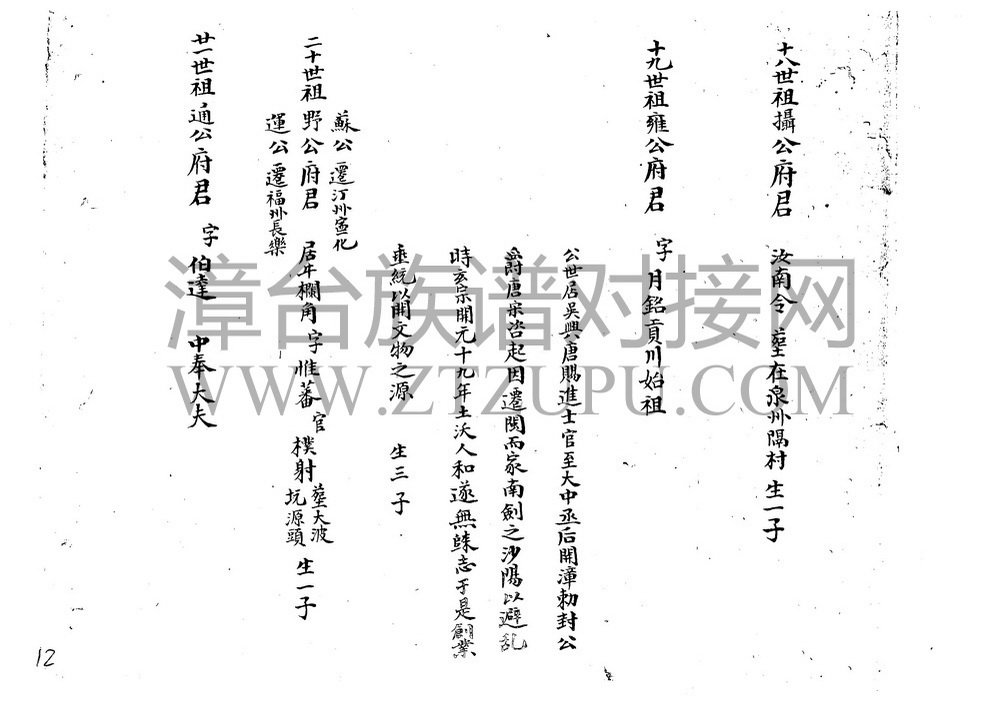 十八世祖攝公府君 汝南令 塟在泉州隅村 生一子
十九世祖雍公府君 字月銘貢川始祖
公世居吳興唐賜進士官至大中丞后開漳勅封公
爵唐宗咨起因遷閩而家南劍之沙陽以避乱
時玄宗開元十九年土沃人和遂無歸志于是創業
垂統以開文物之源 生三子
蘇公遷汀州宣化
二十世祖野公府君 居牛欄角 字惟蕃 官樸射 塟大波坑源頭 生一子
運公遷福州長樂
廿一世祖通公府君 字伯達 中奉大夫
12
漳台族谱对接网
WWW.ZTZUPU.COM